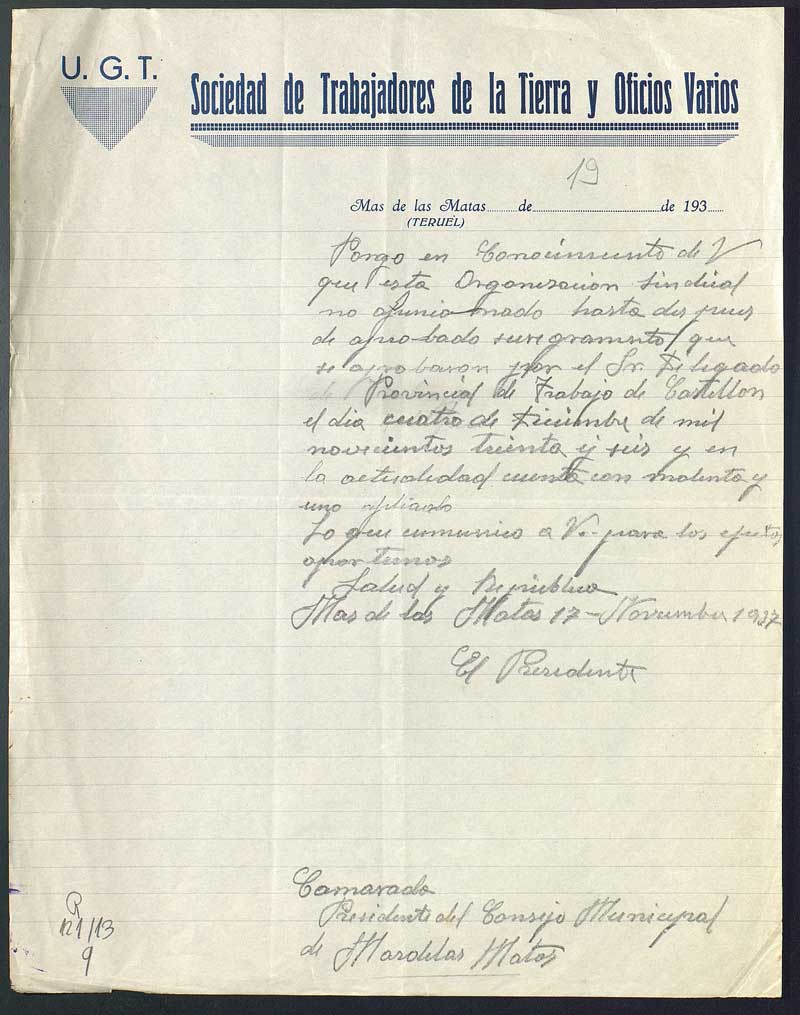 U. G. T.
Sociedad de Trabajadores de la Tierra y Oficios Varios
19
Mas de las Matas......de..............................de 193....
(TERUEL)
Pongo en Conocimiento de V
que esta Organizacion Sindical
no a funcionado hasta des pues
de aprobado su reglamento que
se aprobaron por el Sr. Delegado
de Provincial de Trabajo de Castellon
el dia cuatro de Diciembre de mil
novecientos treinta y seis y en
la actualidad cuenta con y
uno afiliado
Lo que comunico a V. para los efectos
oportunos
Salud y Republica
Mas de las Matas 17 - Novembre 1937
El Presidente
Camarada
Presidente del Consejo Municipal
de Mas de las Matas
R
121/13
9